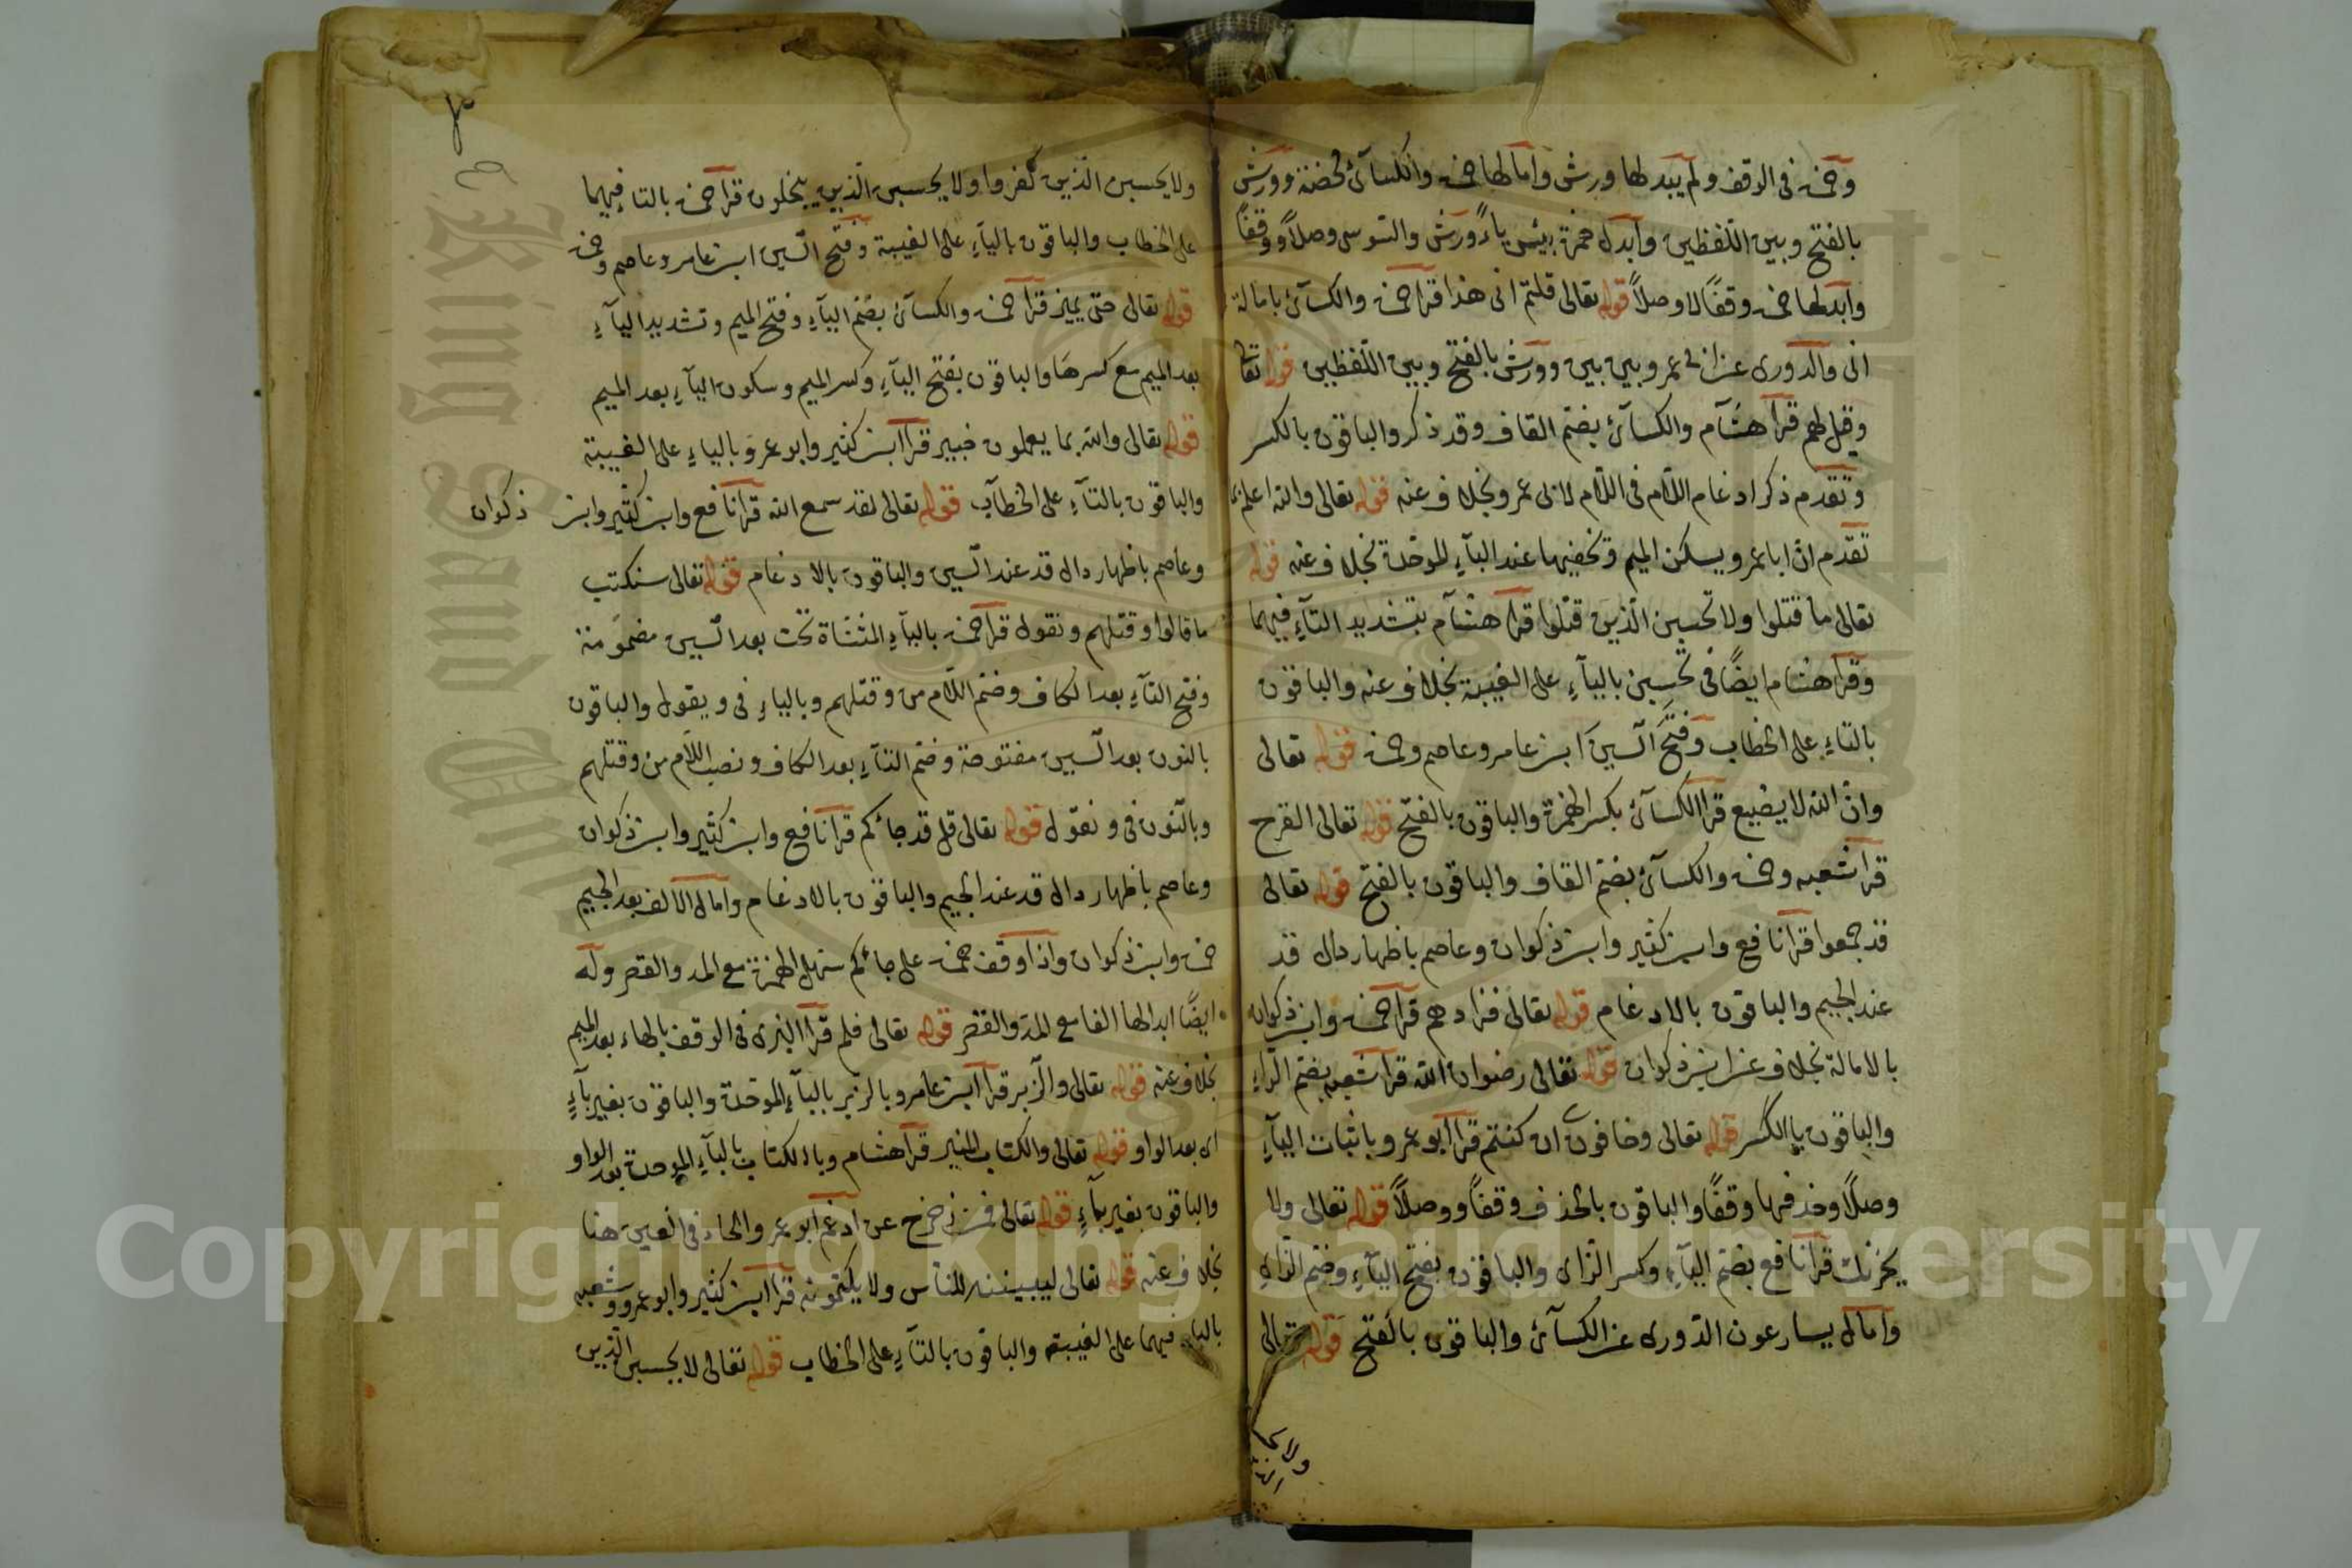 وحمزة فى الوقف ولم يبدلها ورش وامالها حمزة والكسآئ محضة وورش
بالفتح وبين اللفظين وابدل همزة بيئس ياءً ورش والسوسى وصلاً ووقفاً
وابدلها حمزة وقفًا لا وصلاً قوله تعالى قلتم انى هذا قرا حمزة والكسآئ بامالة
انى والدورى عن ابى عمرو بين بين وورش بالفتح وبين اللفظين قوله تعالى
وقيل لهم قرا هشآم والكسآئ بضم القاف وقد ذكر والباقون بالكسر
وتقدم ذكر ادغام اللام فى اللام لابى عمرو بخلاف عنه قوله تعالى والله اعلم بما
تقدم ان ابا عمرو يسكن الميم وتخفيها عند البآءِ الموحدة بخلاف عنه قوله
تعالى ما قتلوا ولا تحسبن الذين قتلوا قرا هشآم بتشديد التآءِ فيهما
وقرا هشام ايضًا فى تحسبن باليآءِ على الغيبة بخلاف عنه والباقون
بالتاءِ على الخطاب وفتح السين ابن عامر وعاصم وحمزة قوله تعالى
وان الله لا يضيع قرا الكسآئ بكسر الهمزة والباقون بالفتح قوله تعالى القرح
قرا شعبه وحمزة والكسآئ بضم القاف والباقون بالفتح قوله تعالى
قد جمعوا قرا نافع وابن كثير وابن ذكوان وعاصم باظهار دال قد
عند الجيم والباقون بالادغام قوله تعالى فزادهم قرا حمزة وابن ذكوان
بالامالة بخلاف عن ابن ذكوان قوله تعالى رضوان الله قرا شعبه بضم الراءِ
والباقون بالكسر قوله تعالى وخافون ان كنتم قرا ابو عمرو باثبات اليآءِ
وصلاً وحذفها وقفًا والباقون بالحذف وقفاً ووصلاً قوله تعالى ولا
يحزنك قرا نافع بضم اليآءِ وكسر الزاى والباقون بفتح اليآءِ وضم الزاىِ
وامال يسارعون الدورى عن الكسآئ والباقون بالفتح قوله تعالى
ولا يحسبن الذين كفروا ولا يحسبن الذين يبخلون قرا حمزة بالتاءِ فيهما
على الخطاب والباقون باليآءِ على الغيبة وفتح السين ابن عامر وعاصم وحمزة
قوله تعالى حتى يميز قرا حمزة والكسآئ بضم اليآءِ وفتح الميم وتشديد اليآءِ
بعد الميم مع كسرها والباقون بفتح اليآءِ وكسر الميم وسكون اليآءِ بعد الميم
قوله تعالى والله بما يعملون خبير قرا ابن كثير وابو عمرو بالياءِ على الغيبة
والباقون بالتآءِ على الخطاب قوله تعالى لقد سمع الله قرا نافع وابن كثير وابن ذكوان
وعاصم باظهار دال قد عند السين والباقون بالادغام قوله تعالى سنكتب
ما قالوا وقتلهم ونقول قرا حمزة باليآءِ المثناة تحت بعد السين مضمومة
وفتح التآءِ بعد الكاف وضم اللام من وقتلهم وبالياءِ فى ويقول والباقون
بالنون بعد السين مفتوحة وضم التآءِ بعد الكاف ونصب اللام من وقتلهم
وبالنون فى ونقول قوله تعالى قل قد جائكم قرا نافع وابن كثير وابن ذكوان
وعاصم باظهار دال قد عند الجيم والباقون بالادغام وامال الالف بعد الجيم
حمزة وابن ذكوان واذا وقف حمزة على جائكم سهل الهمزة مع المد والقصر وله
ايضًا ابدالها الفا مع المد والقصر قوله تعالى فلم قرا البزى فى الوقف بالهاء بعد الميم
بخلاف عنه قوله تعالى والزبر قرا ابن عامر وبالزبر بالبآءِ الموحدة والباقون بغير بآءٍ
اى بعد الواو قوله تعالى والكتاب المنير قرا هشام وبالكتاب بالبآءِ الموحدة بعد الواو
والباقون بغير بآءٍ قوله تعالى فمن زحزح عن ادغم ابو عمرو الحاء فى العين هنا
بخلاف عنه قوله تعالى ليبيننه للناس ولا يكتمونه قرا ابن كثير وابو عمرو وشعبه
بالياء فيهما على الغيبة والباقون بالتآءِ على الخطاب قوله تعالى لا يحسبن الذين
Copyright © King Saud University